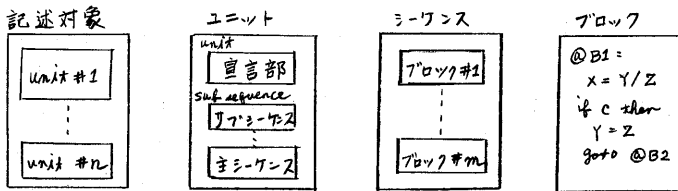 記述対象
unit #1
unit #n
ユニット
unit
宣言部
sub sequence
サブシーケンス
主シーケンス
シーケンス
ブロック#1
ブロック#m
ブロック
@B1:
X = Y/Z
if c then
Y = Z
goto @B2